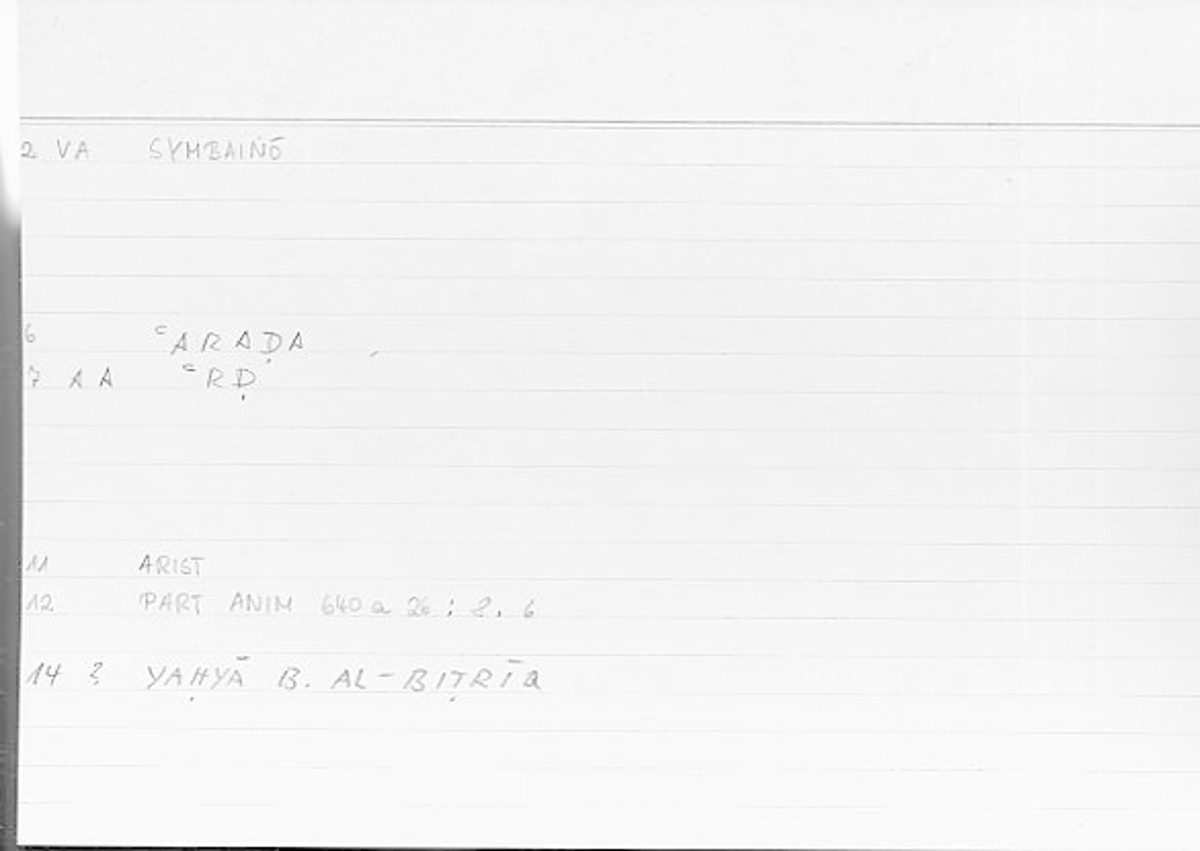 2 VA SYMBAINŌ
6 ʿARAḌA
7 AA ʿRḌ
11 ARIST
12 PART ANIM 640 a 26 : 8. 6
14 ? YAḤYĀ B. AL-BIṬRĪQ